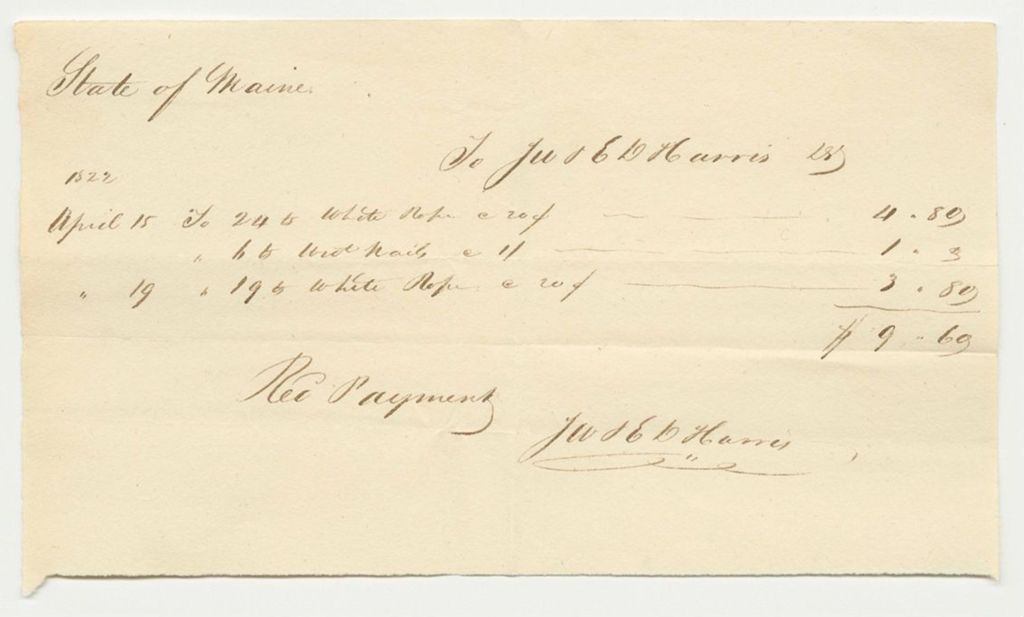 State of Maine
To J W & E D Harris Dr
1822
April 15 To 24 lb White Rope @ 20 ¢ 4.80
" 6 lb Wrot Nails @ 1.
" 19 " 19 lb White Rope @ 20 ¢ 3.80
$ 9.60
Rec Payment
J W & E D Harris